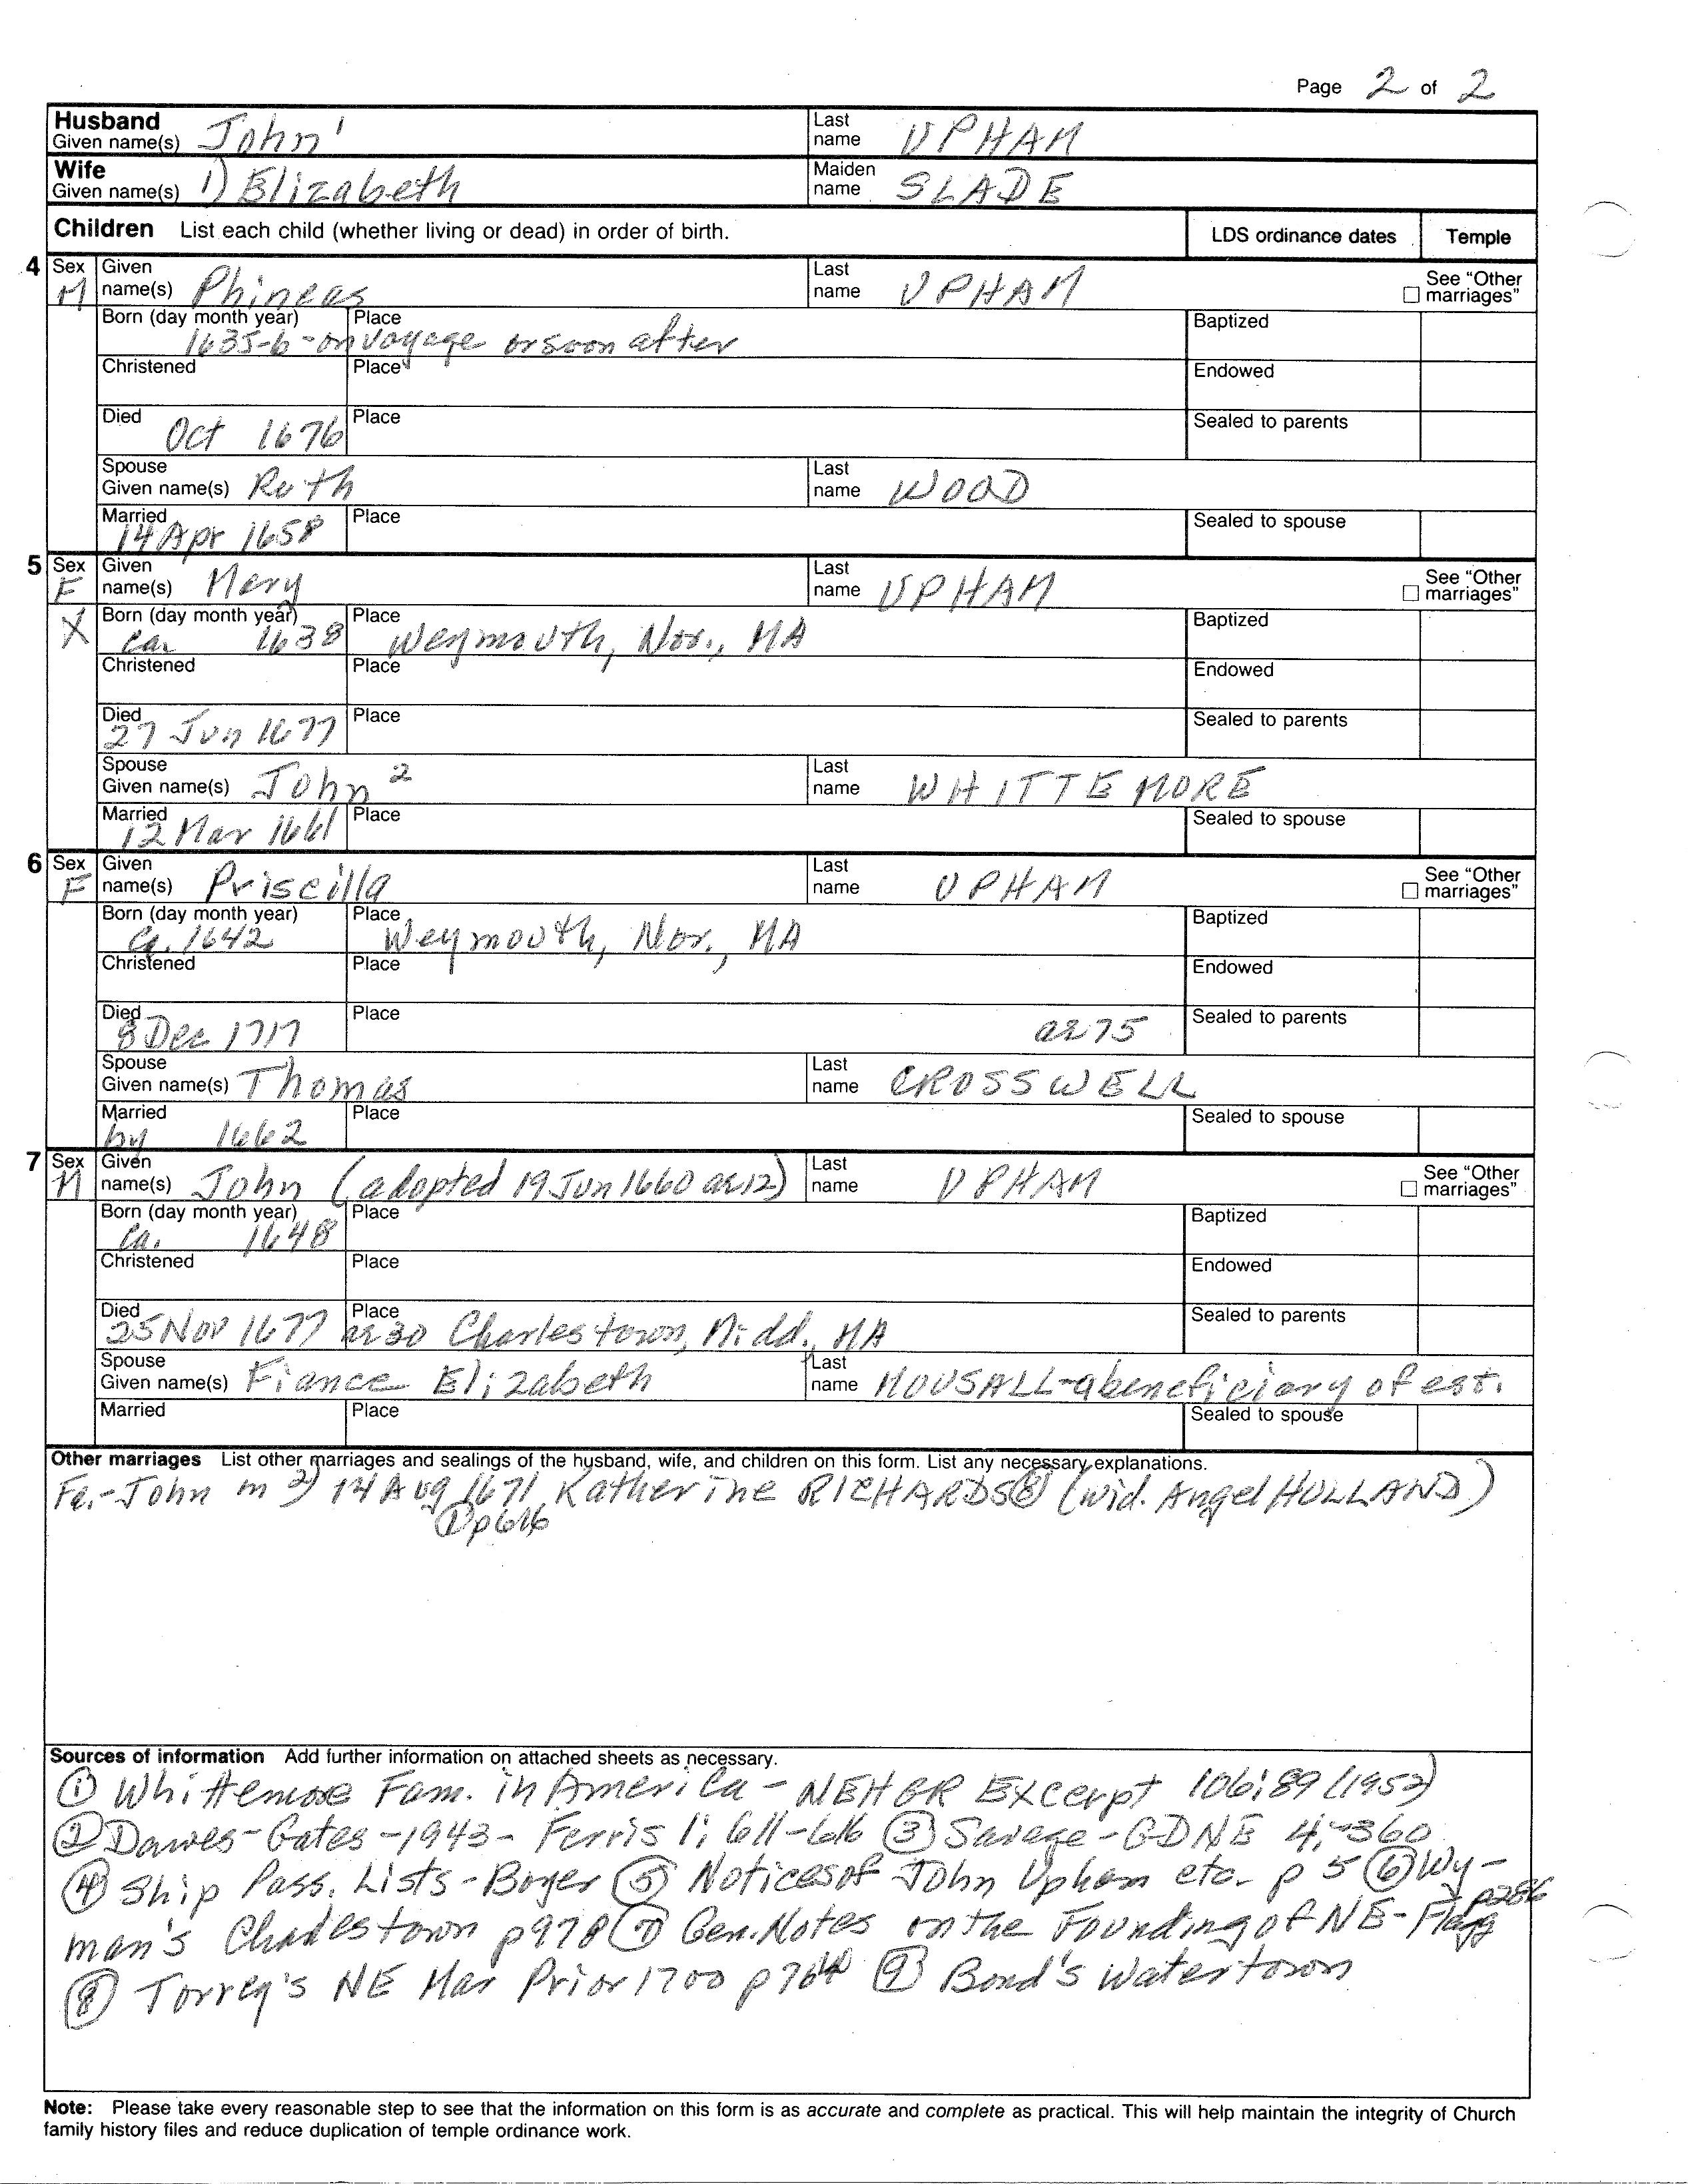 Page 2 of 2
Husband Given name(s) John¹ Last name UPHAM
Wife Given name(s) 1) Elizabeth Maiden name SLADE
Children List each child (whether living or dead) in order of birth. LDS ordinance dates Temple
4 Sex M Given name(s) Phineas Last name UPHAM See "Other marriages"
Born (day month year) Place 1635-6-on voyage or soon after Baptized
Christened Place Endowed
Died Oct 1676 Place Sealed to parents
Spouse Given name(s) Ruth Last name WOOD
Married 14 Apr 1658 Place Sealed to spouse
5 Sex F Given name(s) Mary Last name UPHAM See "Other marriages"
X Born (day month year) ca. 1638 Place Weymouth, Nor., MA Baptized
Christened Place Endowed
Died 27 Jun 1677 Place Sealed to parents
Spouse Given name(s) John² Last name WHITTEMORE
Married 12 Mar 1661 Place Sealed to spouse
6 Sex F Given name(s) Priscilla Last name UPHAM See "Other marriages"
Born (day month year) ca. 1642 Place Weymouth, Nor., MA Baptized
Christened Place Endowed
Died 8 Dec 1717 Place ae 75 Sealed to parents
Spouse Given name(s) Thomas Last name CROSSWELL
Married by 1662 Place Sealed to spouse
7 Sex M Given name(s) John (adopted 19 Jun 1660 ae 12) Last name UPHAM See "Other marriages"
Born (day month year) ca. 1648 Place Baptized
Christened Place Endowed
Died 25 Nov 1677 Place ae 30 Charlestown, Midd., MA Sealed to parents
Spouse Given name(s) Fiance Elizabeth Last name MOUSALL-a beneficiary of est.
Married Place Sealed to spouse
Other marriages List other marriages and sealings of the husband, wife, and children on this form. List any necessary explanations.
Fa.-John m 2) 14 Aug 1671 Katherine RICHARDS⑧ (wid. Angel HOLLAND)
① p 616
Sources of information Add further information on attached sheets as necessary.
① Whittemore Fam. in America - NEHGR Excerpt 106:89 (1952)
② Dawes-Gates-1943- Ferris 1; 611-616 ③ Savage-GDNE 4:-360
④ Ship Pass. Lists-Boyer ⑤ Notices of John Upham etc. p 5 ⑥ Wy-
man's Charlestown p978 ⑦ Gen. Notes on the Founding of NE-Flagg p286
⑧ Torrey's NE Mar Prior 1700 p764 ⑨ Bond's Watertown
Note: Please take every reasonable step to see that the information on this form is as accurate and complete as practical. This will help maintain the integrity of Church
family history files and reduce duplication of temple ordinance work.